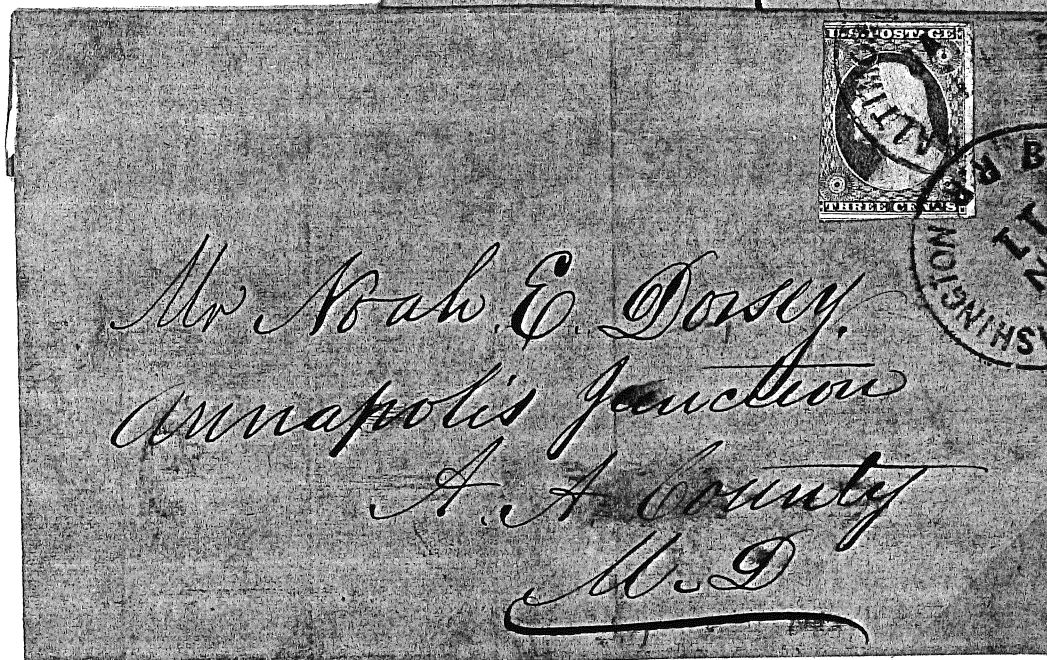 U.S. POSTAGE
THREE CENTS
Mr Noah. E. Dorsey.
Annapolis Junction
A. A. County
M. D